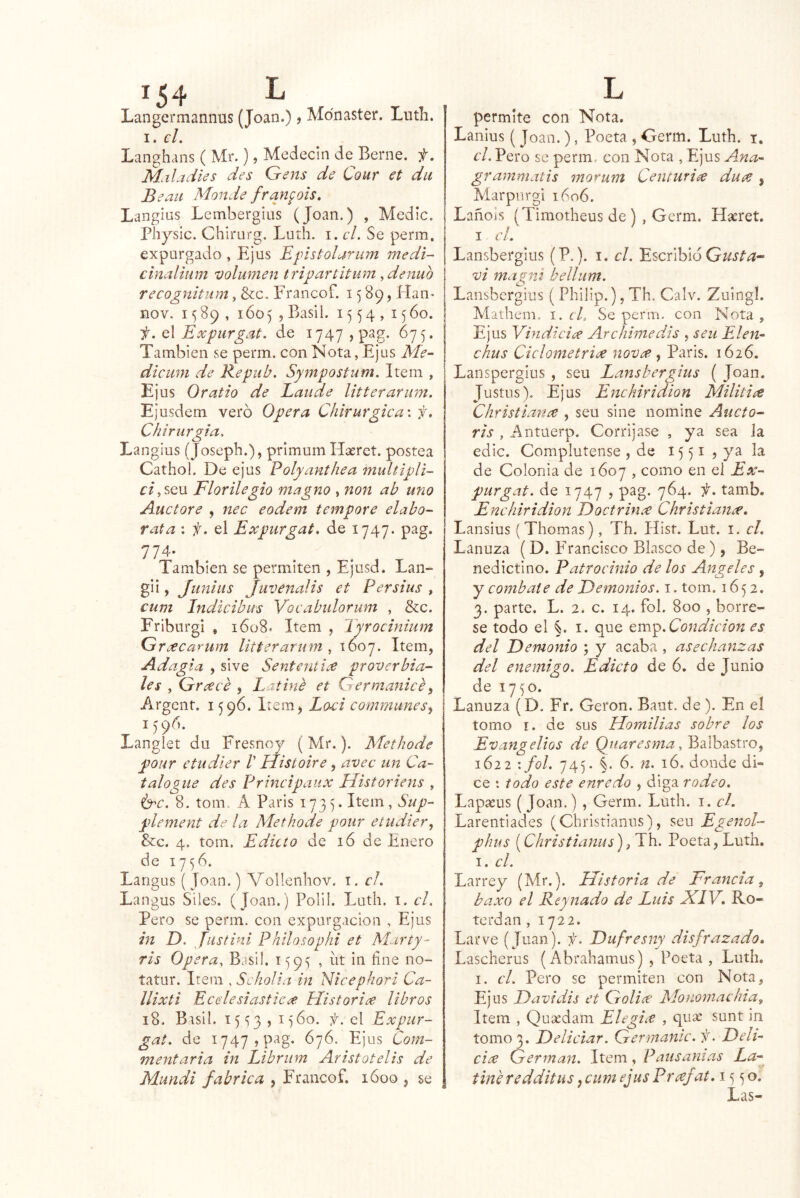 154 L
Langermannus (Joan.), Monaster. Luth.
1. cl.
Langhans ( Mr. ), Medecin de Berne. ℣.
Maladies des Gens de Cour et du
Beau Monde françois.
Langius Lembergius (Joan.) , Medic.
Physic. Chirurg. Luth. 1. cl. Se perm.
expurgado , Ejus Epistolarum medi-
cinalium volumen tripartitum , denuò
recognitum, &c. Francof. 1589, Han-
nov. 1589 , 1605 , Basil. 1554, 1560.
℣. el Expurgat. de 1747 , pag. 675.
Tambien se perm. con Nota, Ejus Me-
dicum de Repub. Sympostum. Item ,
Ejus Oratio de Laude litterarum.
Ejusdem verò Opera Chirurgica: ℣.
Chirurgia.
Langius (Joseph.), primum Hæret. postea
Cathol. De ejus Polyanthea multipli-
ci, seu Florilegio magno , non ab uno
Auctore , nec eodem tempore elabo-
rata : ℣. el Expurgat. de 1747. pag.
774.
Tambien se permiten , Ejusd. Lan-
gii, Junius Juvenalis et Persius ,
cum Indicibus Vocabulorum , &c.
Friburgi , 1608. Item , Tyrocinium
Græcarum litterarum , 1607. Item,
Adagia , sive Sententiæ proverbia-
les , Græcè , Latinè et Germanicè,
Argent. 1596. Item, Loci communes,
1596.
Langlet du Fresnoy ( Mr. ). Methode
pour etudier l' Histoire , avec un Ca-
talogue des Principaux Historiens ,
&c. 8. tom. A Paris 1735. Item, Sup-
plement de la Methode pour etudier,
&c. 4. tom. Edicto de 16 de Enero
de 1756.
Langus ( Joan. ) Vollenhov. 1. cl.
Langus Siles. ( Joan.) Polil. Luth. 1. cl.
Pero se perm. con expurgacion , Ejus
in D. Justini Philosophi et Marty-
ris Opera, Basil. 1595 , ùt in fine no-
tatur. Item , Scholia in Nicephori Ca-
llixti Ecelesiasticæ Historiæ libros
18. Basil. 1553 , 1560. ℣. el Expur-
gat. de 1747 , pag. 676. Ejus Com-
mentaria in Librum Aristotelis de
Mundi fabrica , Francof. 1600 , se
L
permite con Nota.
Lanius ( Joan. ), Poeta , Germ. Luth. 1.
cl. Pero se perm. con Nota , Ejus Ana-
grammatis morum Centuriæ duæ ,
Marpurgi 1606.
Lañois (Timotheus de ) , Germ. Hæret.
1. cl.
Lansbergius ( P. ). 1. cl. Escribió Gusta-
vi magni bellum.
Lansbergius ( Philip. ), Th. Calv. Zuingl.
Mathem. 1. cl. Se perm. con Nota ,
Ejus Vindiciæ Archimedis , seu Elen-
chus Ciclometriæ novæ , Paris. 1626.
Lanspergius , seu Lansbergius ( Joan.
Justus). Ejus Enchiridion Militiæ
Christianæ , seu sine nomine Aucto-
ris , Antuerp. Corrijase , ya sea la
edic. Complutense , de 1551 , ya la
de Colonia de 1607 , como en el Ex-
purgat. de 1747 , pag. 764. ℣. tamb.
Enchiridion Doctrinæ Christianæ.
Lansius ( Thomas ) , Th. Hist. Lut. 1. cl.
Lanuza ( D. Francisco Blasco de ) , Be-
nedictino. Patrocinio de los Angeles ,
y combate de Demonios. 1. tom. 1652.
3. parte. L. 2. c. 14. fol. 800 , borre-
se todo el §. 1. que emp. Condicion es
del Demonio ; y acaba , asechanzas
del enemigo. Edicto de 6. de Junio
de 1750.
Lanuza ( D. Fr. Geron. Baut. de ). En el
tomo 1. de sus Homilias sobre los
Evangelios de Quaresma, Balbastro,
1622 : fol. 745. §. 6. n. 16. donde di-
ce : todo este enredo , diga rodeo.
Lapæus ( Joan. ) , Germ. Luth. 1. cl.
Larentiades (Christianus), seu Egenol-
phus (Christianus), Th. Poeta, Luth.
1. cl.
Larrey (Mr.). Historia de Francia ,
baxo el Reynado de Luis XIV. Ro-
terdan , 1722.
Larve ( Juan). ℣. Dufresny disfrazado.
Lascherus (Abrahamus) , Poeta , Luth.
1. cl. Pero se permiten con Nota,
Ejus Davidis et Goliæ Monomachia,
Item , Quædam Elegiæ , quæ sunt in
tomo 3. Deliciar. Germanic. ℣. Deli-
ciæ German. Item, Pausanias La-
tinè redditus, cum ejus Præfat. 1550.
Las-